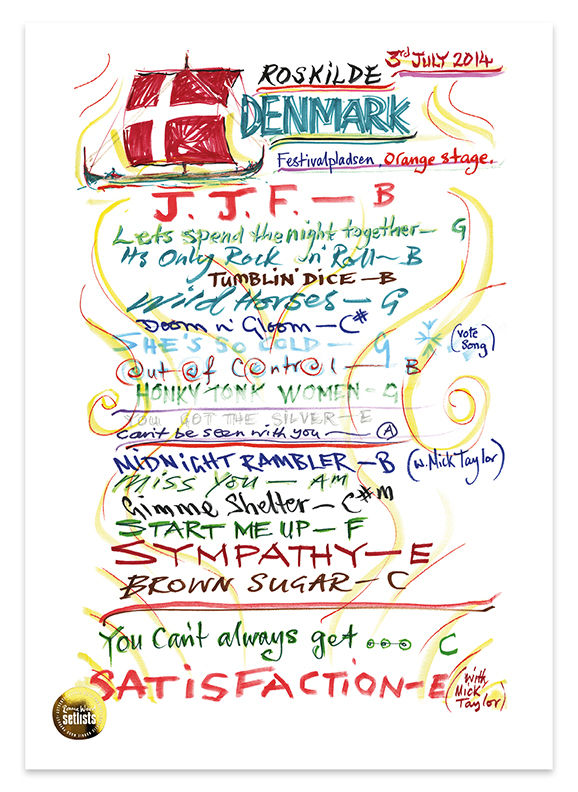 3rd JULY 2014
ROSKILDE
DENMARK
Festivalpladsen. Orange stage.
J. J. F. — B
Lets spend the night together — G
Its Only Rock n' Roll — B
TUMBLIN' DICE — B
Wild Horses — G
Doom n' Gloom — C#
SHE'S SO COLD — G (vote song)
Out of Control — B
HONKY TONK WOMEN — G
YOU GOT THE SILVER — E
Can't be seen with you — A
MIDNIGHT RAMBLER — B (w. Mick Taylor)
Miss You — AM
Gimme Shelter — C#m
START ME UP — F
SYMPATHY — E
BROWN SUGAR — C
You Can't always get ... C
SATISFACTION — E (with Mick Taylor)
Ronnie Wood
setlists